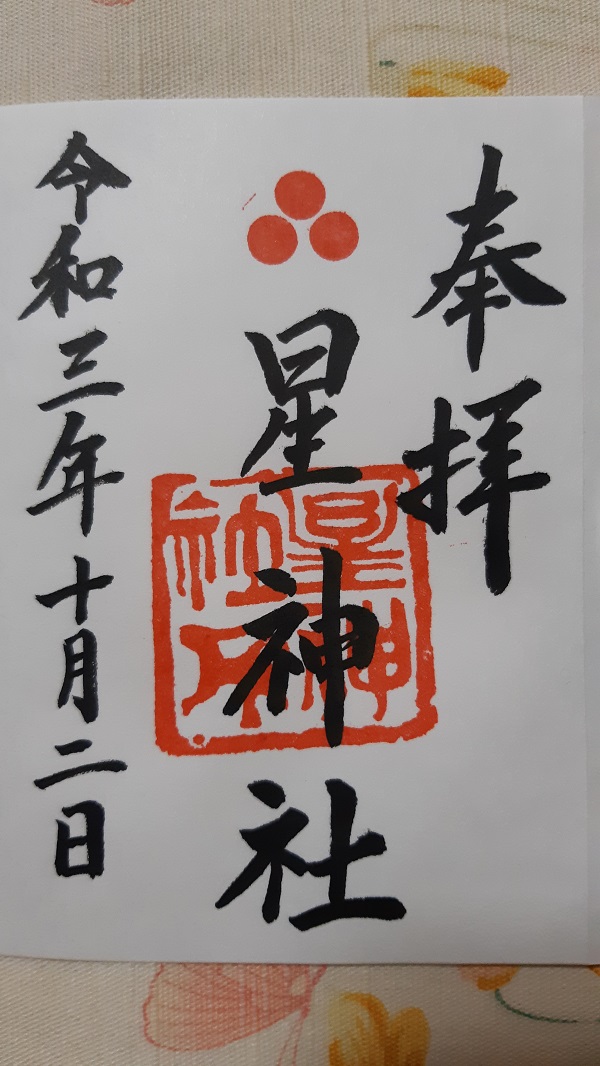 奉拝
星神社
令和三年十月二日